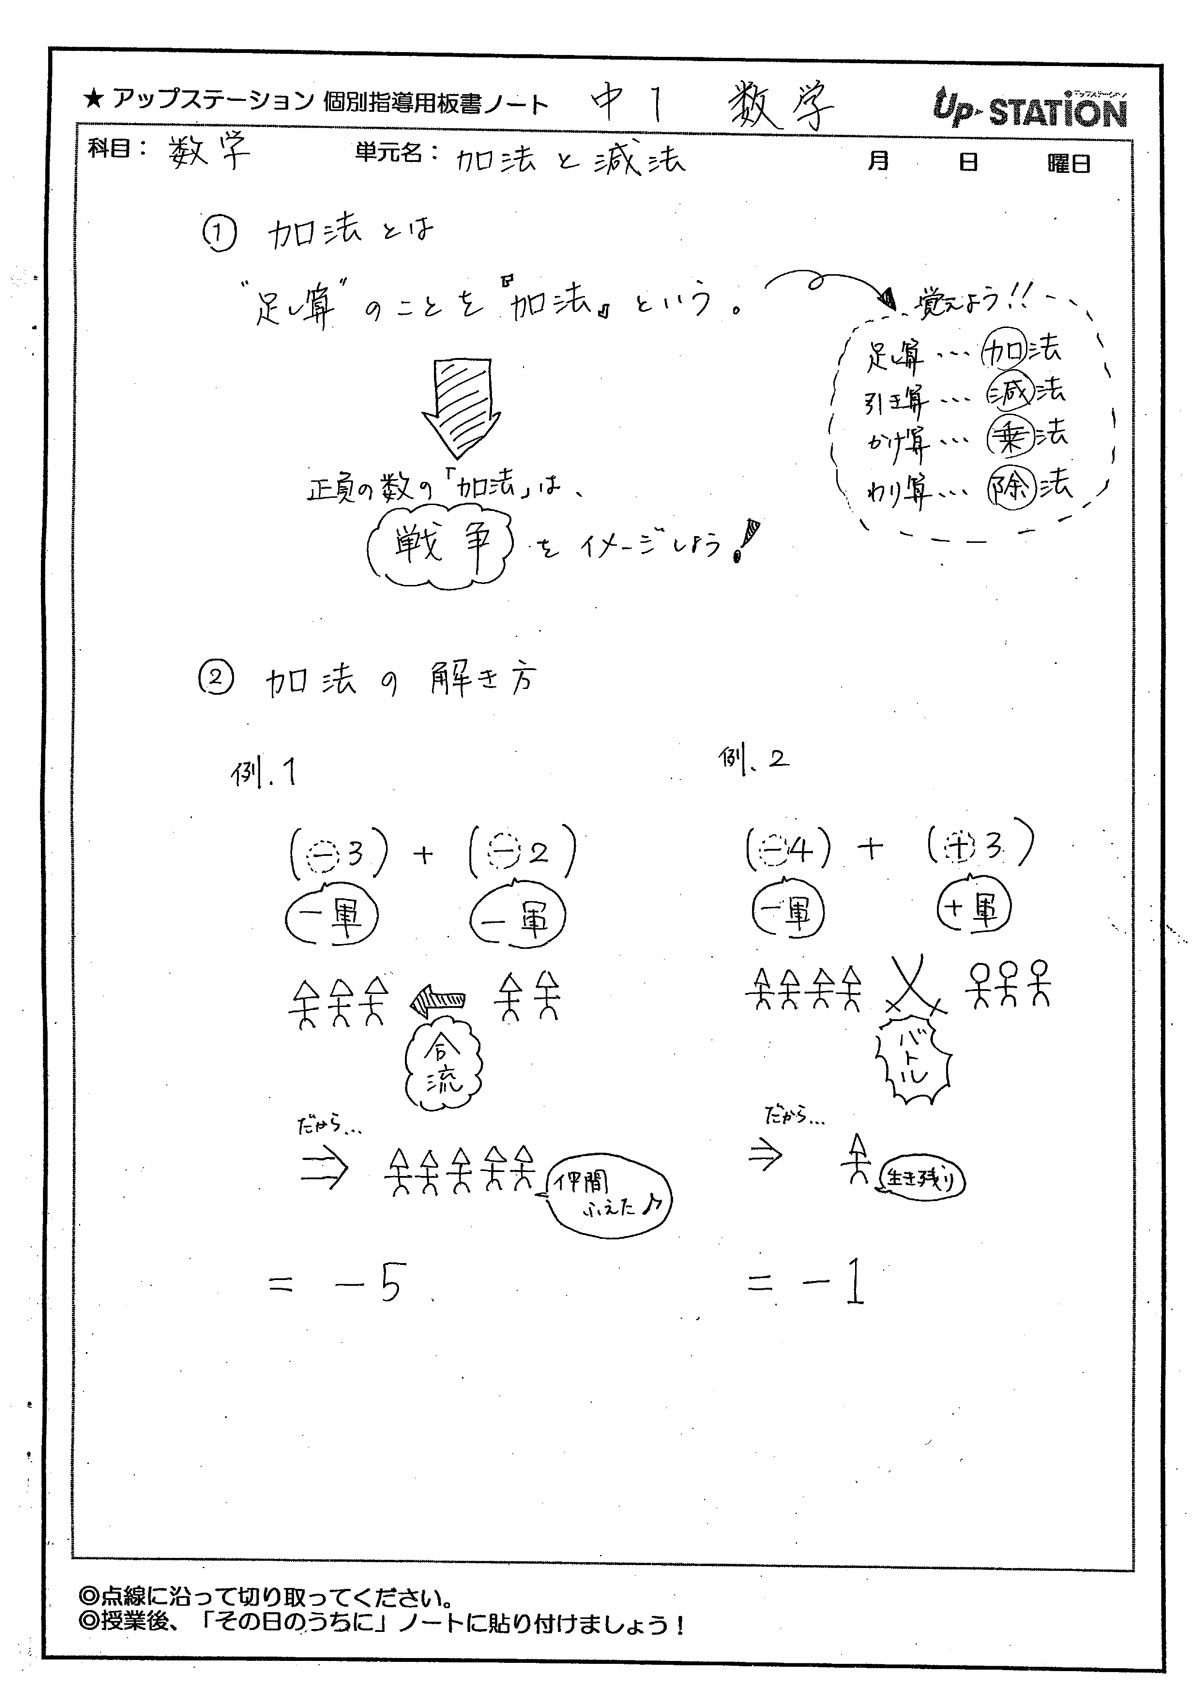 ★ アップステーション 個別指導用板書ノート 中1 数学
アップステーション
Up-STATION
科目： 数学 単元名： 加法と減法 月 日 曜日
① 加法とは
"足し算"のことを『加法』という。
覚えよう!!
足し算…加法
引き算…減法
かけ算…乗法
わり算…除法
正負の数の「加法」は、
戦争をイメージしよう!
② 加法の解き方
例.1
(−3) + (−2)
−軍 −軍
合流
だから…
⇒
仲間
ふえた♪
= −5
例.2
(−4) + (+3)
−軍 +軍
バトル
だから…
⇒
生き残り
= −1
◎点線に沿って切り取ってください。
◎授業後、「その日のうちに」ノートに貼り付けましょう！